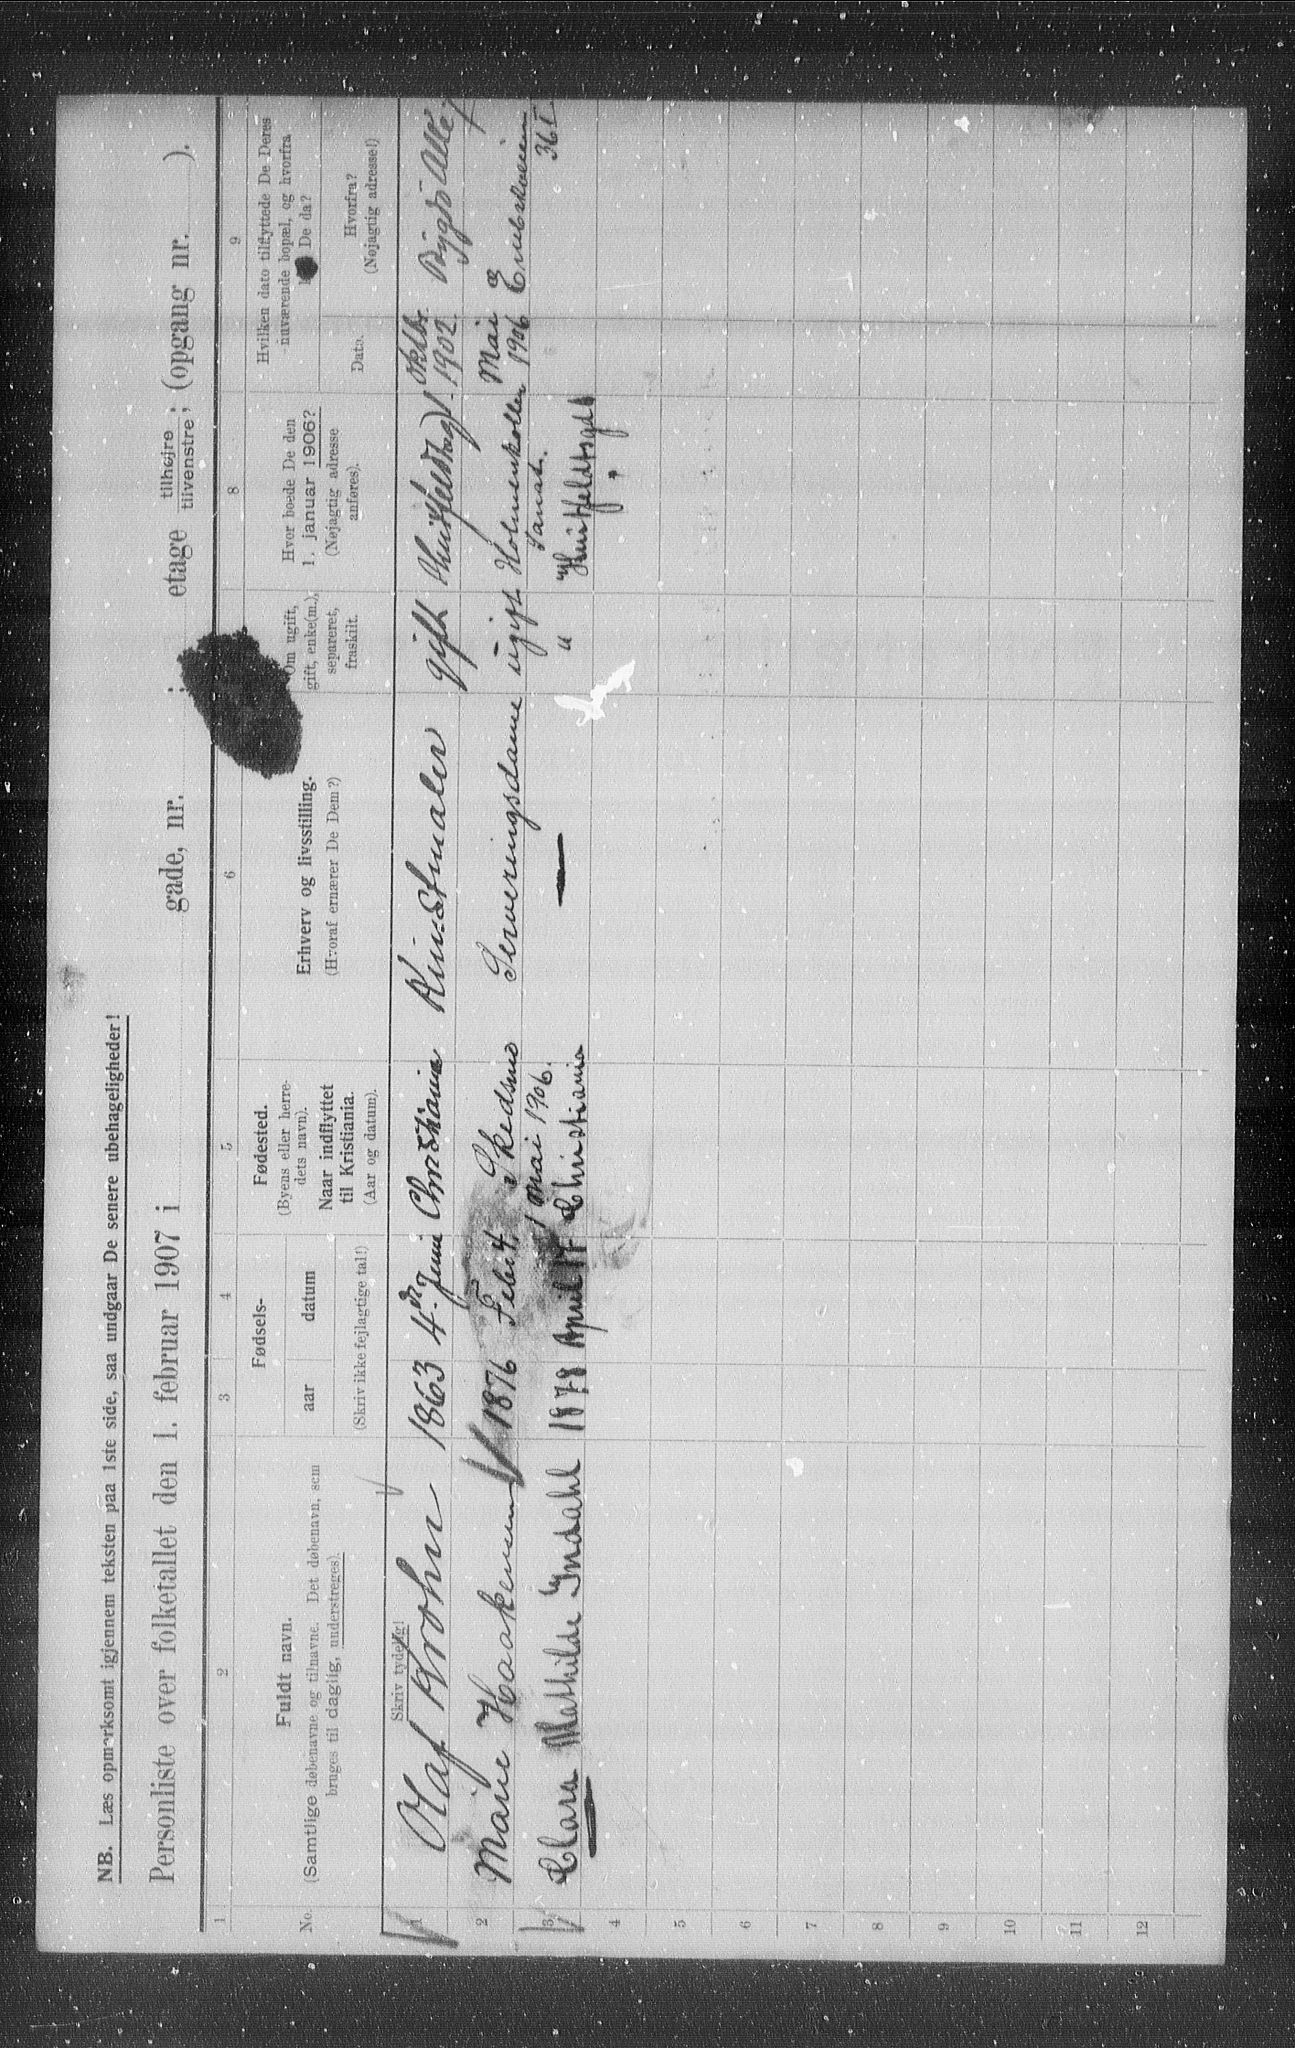 NB. Læs opmærksomt igjennem teksten paa 1ste side, saa undgaar De senere ubehageligheder!
Personliste over folketallet den 1. februar 1907 i gade, nr. i etage tilhøjre tilvenstre; (opgang nr. ).
1 2 3 4 5 6 8 9
No.
Fuldt navn.
(Samtlige døbenavne og tilnavne. Det døbenavn, som
bruges til daglig, understreges).
Fødsels-
aar datum
(Skriv ikke fejlagtige tal!)
Fødested.
(Byens eller herre-
dets navn).
Naar indflyttet
til Kristiania.
(Aar og datum).
Erhverv og livsstilling.
(Hvoraf ernærer De Dem?)
Om ugift,
gift, enke(m.),
separeret,
fraskilt.
Hvor boede De den
1. januar 1906?
(Nøjagtig adresse
anføres).
Hvilken dato tilflyttede De Deres
nuværende bopæl, og hvorfra
De da?
Dato.
Hvorfra?
(Nøjagtig adresse!)
Skriv tydelig!
1 Olaf Krohn 1863 4de Juni Christiania Kunstmaler gift Huitfeldtsg 1 Oktbr 1902 Bygdø Allé
2 Marie Haakensen 1876 Febr 4 Skedsmo Serveringsdame ugift Holmenkollen Mai 1906
1 Mai 1906. Sanat.
36 I
3 Clara Mathilde Indahl 1878 April 17 Christiania — " Huitfeldtsgd
4
5
6
7
8
9
10
11
12